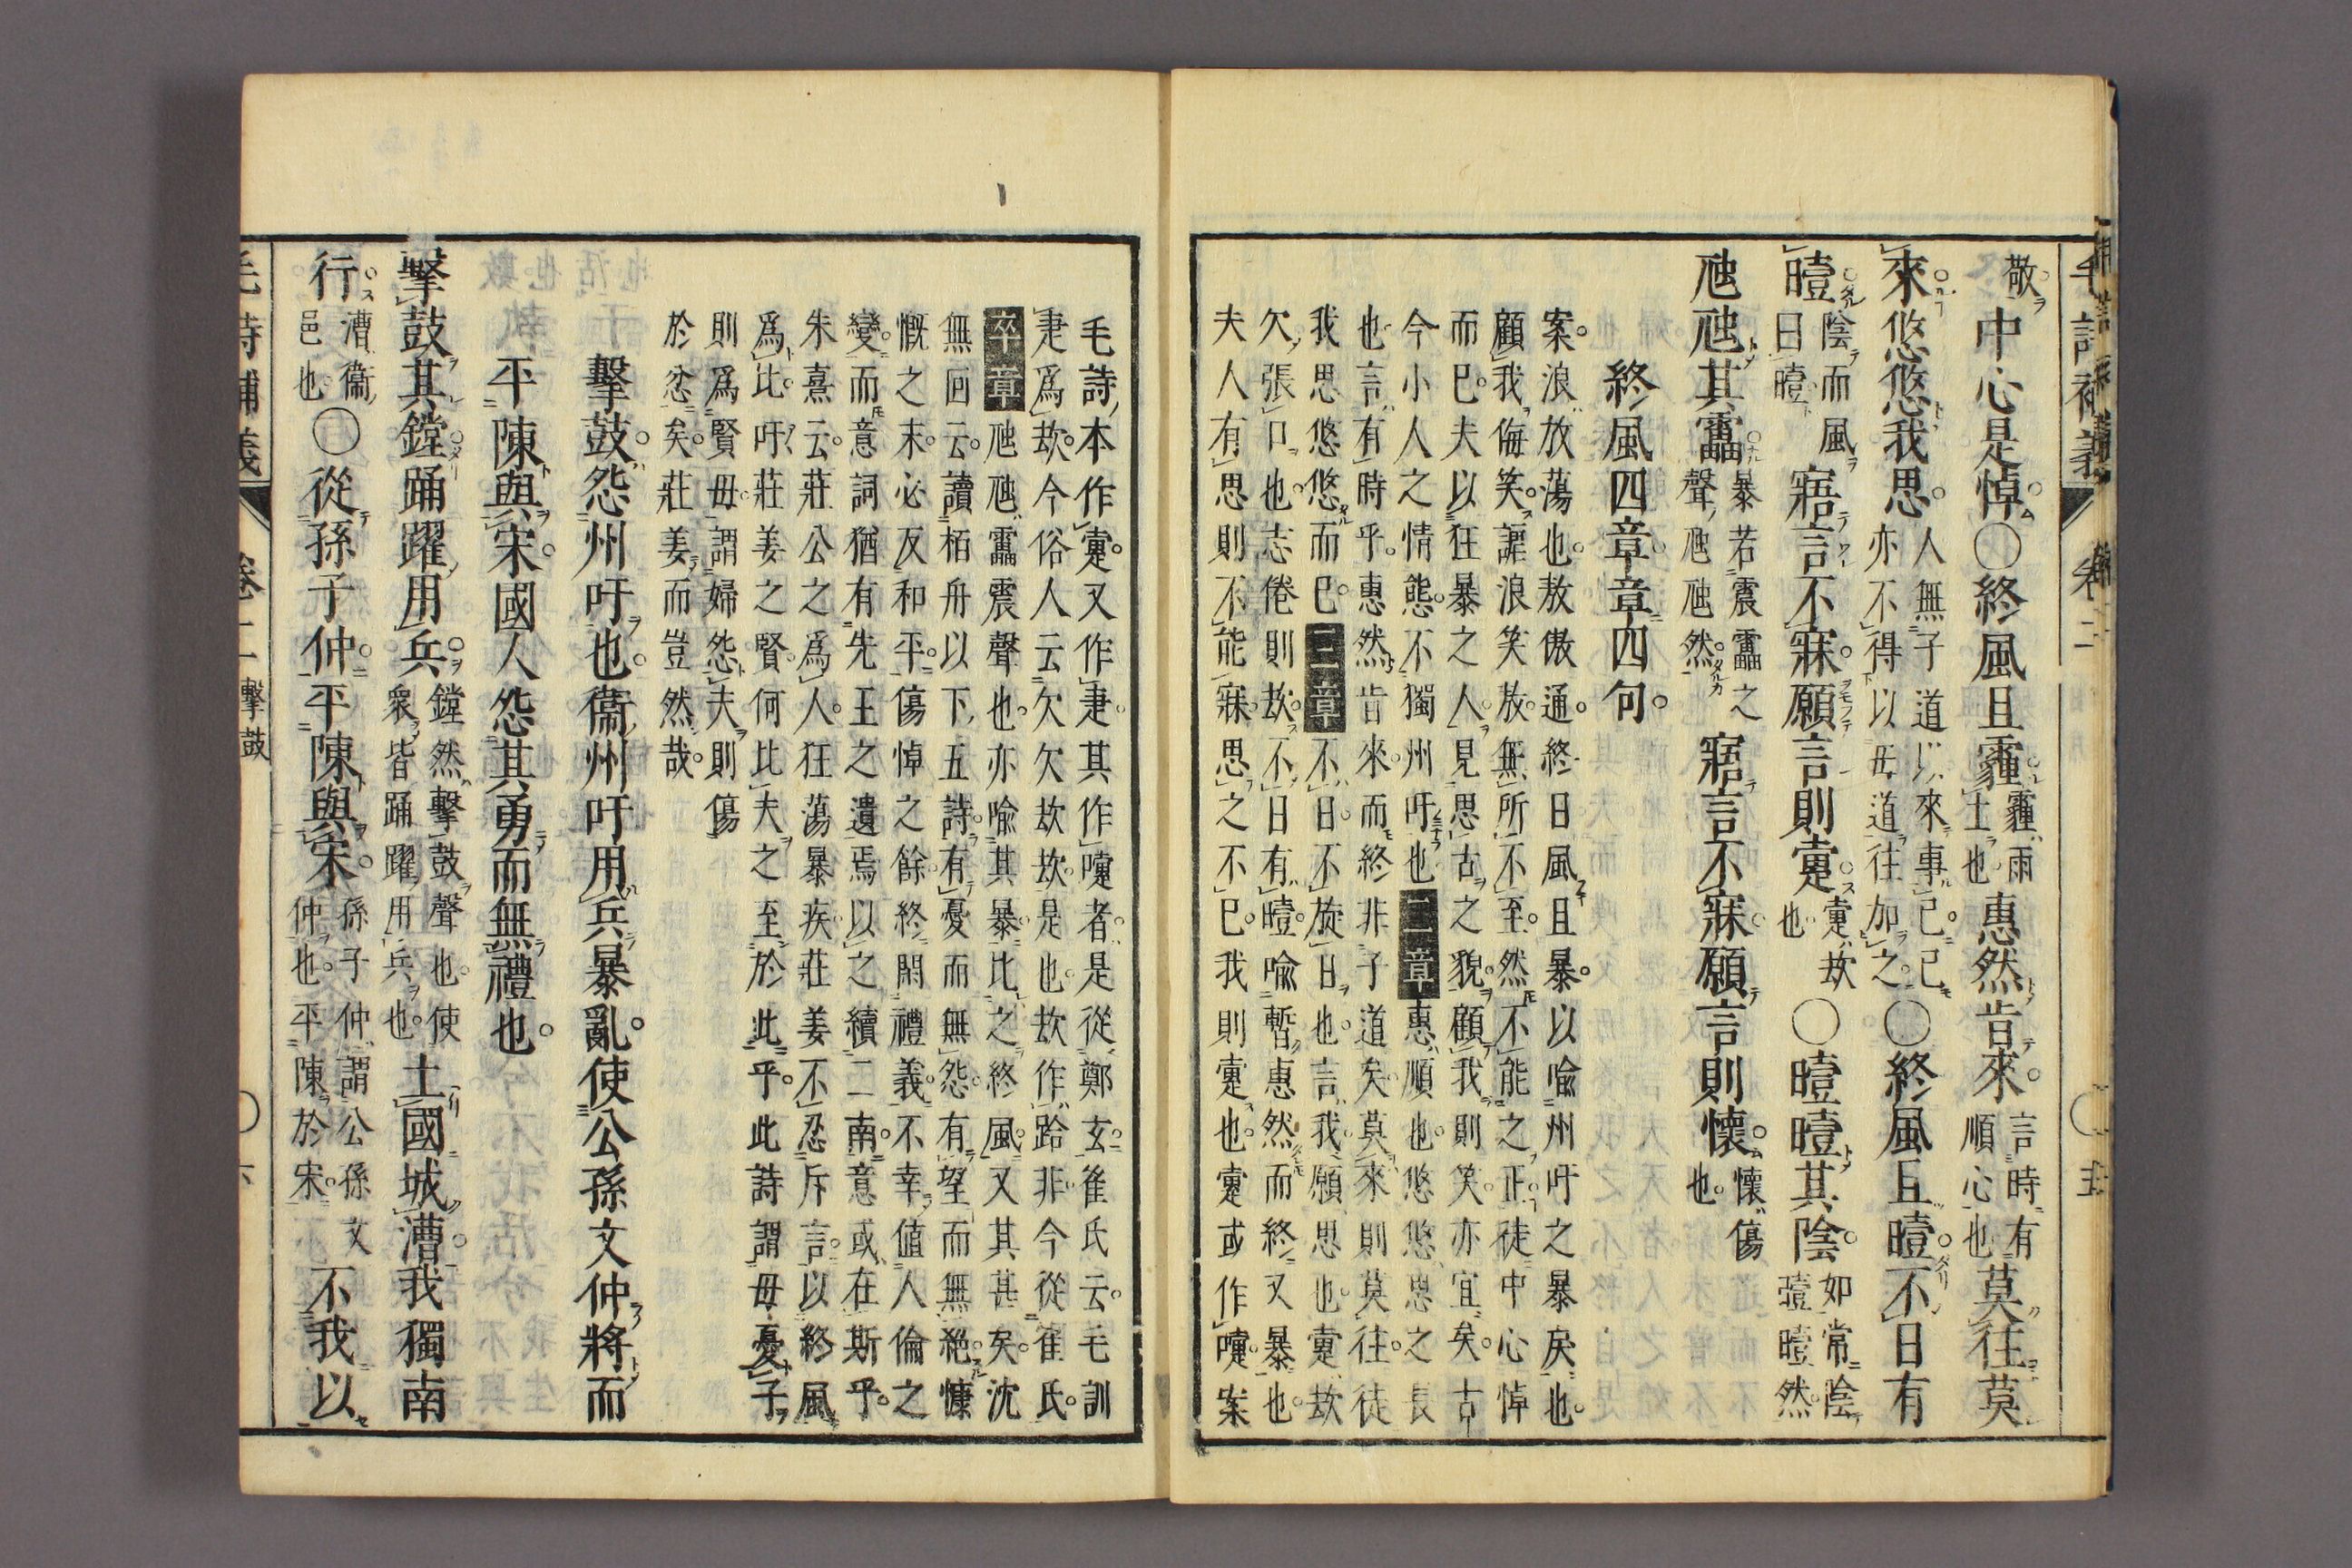 敬中心是悼○終風且霾霾雨土也惠然肯來言時有順心也莫往莫
來悠悠我思人無子道以來專己己亦不得以母道往加之○終風且曀不日有
曀陰而風曰曀寤言不寐願言則疐疐㰦也○曀曀其陰如常陰曀曀然
虺虺其靁暴若震靁之聲虺虺然寤言不寐願言則懷懷傷也
終風四章章四句
案浪放蕩也敖傲通終日風且暴以喻州吁之暴戾也
顧我侮笑謔浪笑敖無所不至然不能之正徒中心悼
而已夫以狂暴之人見思古之貌顧我則笑亦宜矣古
今小人之情態不獨州吁也二章惠順也悠悠思之長
也言有時乎惠然肯來而終非子道矣莫來則莫往徒
我思悠悠而已三章不日不旋日也言我願思也疐㰦
欠張口也志倦則㰦不日有曀喻暫惠然而終又暴也
夫人有思則不能寐思之不已我則疐也疐或作嚏案
毛詩本作疐又作疌其作嚏者是從鄭玄崔氏云毛訓
疌爲㰦今俗人云欠欠㰦㰦是也㰦作跲非今從崔氏
卒章虺虺靁震聲也亦喻其暴比之終風又其甚矣沈
無回云讀柏舟以下五詩有憂而無怨有望而無絕慷
慨之末必反和平傷悼之餘終閑禮義不幸値人倫之
變而意詞猶有先王之遺焉以之續二南意或在斯乎
朱熹云莊公之爲人狂蕩暴疾莊姜不忍斥言以終風
爲比吁莊姜之賢何比夫之至於此乎此詩謂母憂子
則爲賢母謂婦怨夫則傷
於忿矣莊姜而豈然哉
擊鼓怨州吁也衞州吁用兵暴亂使公孫文仲將而
平陳與宋國人怨其勇而無禮也
擊鼓其鏜踊躍用兵鏜然擊鼓聲也使衆皆踊躍用兵也土國城漕我獨南
行漕衞邑也○從孫子仲平陳與宋孫子仲謂公孫文仲也平陳於宋不我以
毛詩補義
卷二
擊鼓